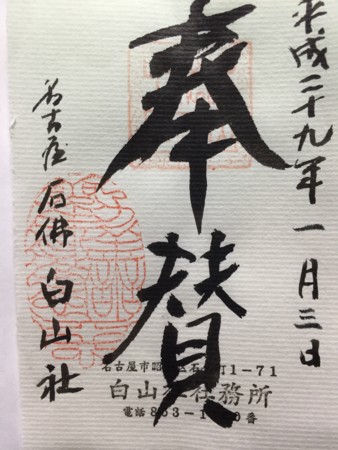 平成二十九年一月三日
奉賛
名古屋 石佛 白山社
名古屋市昭 区石 町1-71
白山社社務所
電話 853-1 6番